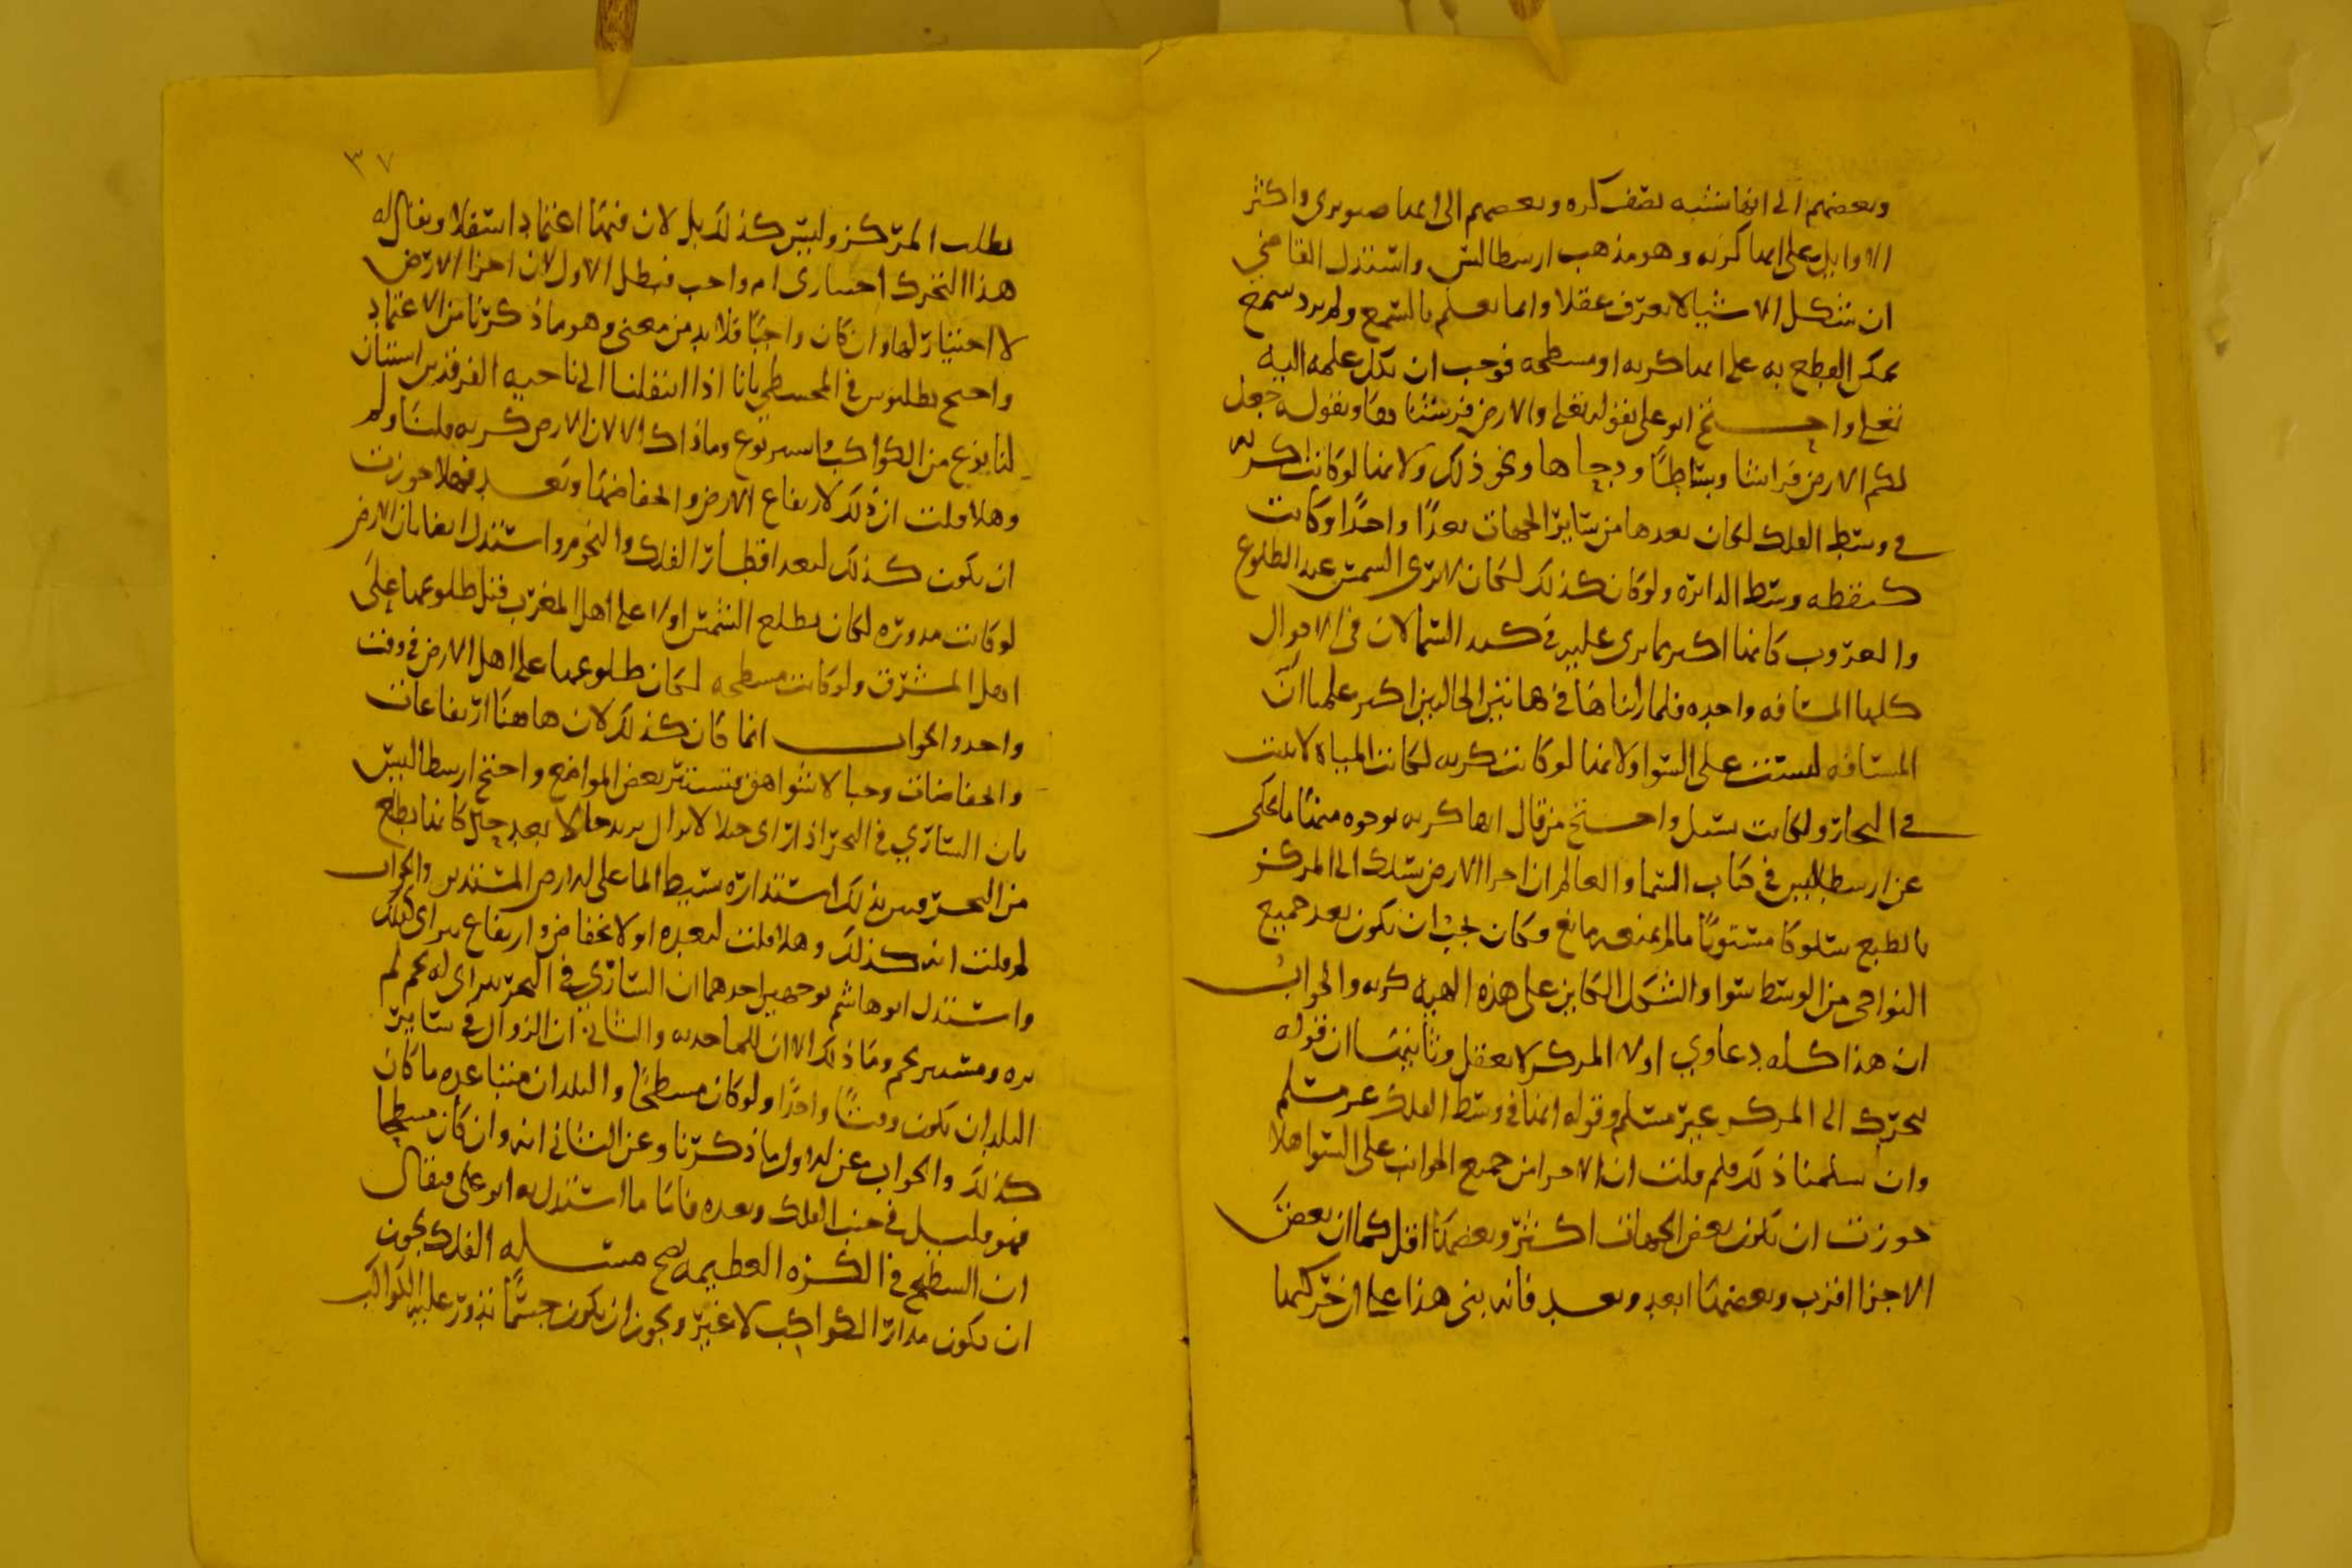 وبعضهم الى انها تشبه نصف كره وبعضهم الى انها صنوبرى واكثر
الاوايل على انها كريه وهو مذهب ارسطاليس واستدل القاضي
ان شكل الاشيا لا يعرف عقلا وانما يعلم بالسمع ولم يرد سمع
يمكن القطع به على انها كريه او مسطحه فوجب ان نكل علمه اليه
تعلى واحتج ابو على بقوله تعلى والارض فرشناها وبقوله جعل
لكم الارض فراشا وبساطا ودحاها ونحو ذلك ولانها لو كانت كريه
في وسط الفلك لكان بعدها من ساير الجهات بعدًا واحدًا وكانت
كنقطه وسط الدايره ولو كان كذلك لكان لا نرى الشمس عند الطلوع
والغروب كانها اكبر مما نرى عليه في كبد السما لان في الاحوال
كلها المسافه واحده فلما رايناها في هاتين الحالتين اكبر علمنا ان
المسافه ليست على السوا ولانها لو كانت كريه لكانت المياه لا تثبت
في البحار ولكانت تسيل واحتج من قال انها كريه بوجوه منها ما يحكى
عن ارسطاليس في كتاب السما والعالم ان اجزا الارض تسلك الى المركز
بالطبع سلوكا مستويًا ما لم يمنعه مانع وكان يجب ان يكون بعد جميع
النواحى من الوسط سوا والشكل الكاين على هذه الهيه كريه والجواب
ان هذا كله دعاوي اولا المركز لا يعقل وثانيها ان قوله
يتحرك الى المركز غير مسلم وقوله انها في وسط الفلك غير مسلم
وان سلمنا ذلك فلم قلت ان الاجزا من جميع الجوانب على السوا هلا
جوزت ان تكون بعض الجهات اكثر وبعضها اقل كما ان بعض
الاجزا اقرب وبعضها ابعد وبعد فانه بنى هذا على ان حركتها
٣٧
بطلب المركز وليس كذلك بل لان فيها اعتماد استفلا ويقال له
هذا التحرك اختيارى ام واجب فبطل الاول لان اجزا الارض
لا اختيار لها وان كان واجبًا فلا بد من معنى وهو ما ذكرنا من الاعتماد
واحتج بطلنوس في المجسطي بانا اذا انتقلنا الى ناحيه الفرقدين استبان
لنا نوع من الكواكب واستتر نوع وما ذاك الا لان الارض كريه قلنا ولم
وهلا قلت ان ذلك لارتفاع الارض وانخفاضها وبعد فهلا جوزت
ان يكون كذلك لبعد اقطار الفلك والنجوم واستدل ايضا بان الارض
لو كانت مدوره لكان تطلع الشمس اولا على اهل المغرب قبل طلوعها على
اهل المشرق ولو كانت مسطحه لكان طلوعها على اهل الارض في وقت
واحد والجواب انما كان كذلك لان هاهنا ارتفاعات
وانخفاضات وجبالا شواهق تستتر بعض المواضع واحتج ارسطاليس
بان الساري في البحر اذا راى جبلا لا يزال يزيد حالا بعد حال كانها يطلع
من البحر فتبين بذلك استداره بسيط الما على الارض المستدير والجواب
لم قلت انه كذلك وهلا قلت لبعده او لانخفاض وارتفاع يتراى كذلك
واستدل ابو هاشم بوجهين احدهما ان الساري في البحر يتراى له نجم لم
يره ويستتر نجم وما ذلك الا ان للما حدبه والثاني ان الزوال في ساير
البلدان يكون وقتًا واحدًا ولو كان مسطحًا والبلدان متباعده ما كان
كذلك والجواب عن الاول ما ذكرنا وعن الثاني انه وان كان مسطحا
فهو قليل في جنب الفلك وبعده فاما ما استدل به ابو على فيقال
ان السطيح في الكره العظيمه يصح مسله الفلك يجوز
ان يكون مدار الكواكب لا غير ويجوز ان يكون جسمًا تدور عليه الكواكب